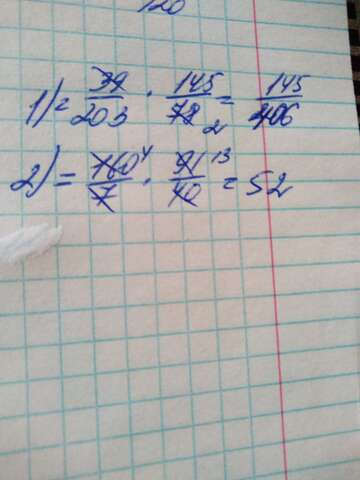 120
1) = 39/203 · 145/78 2 = 145/406
2) = 160/7 4 · 91/40 13 = 52